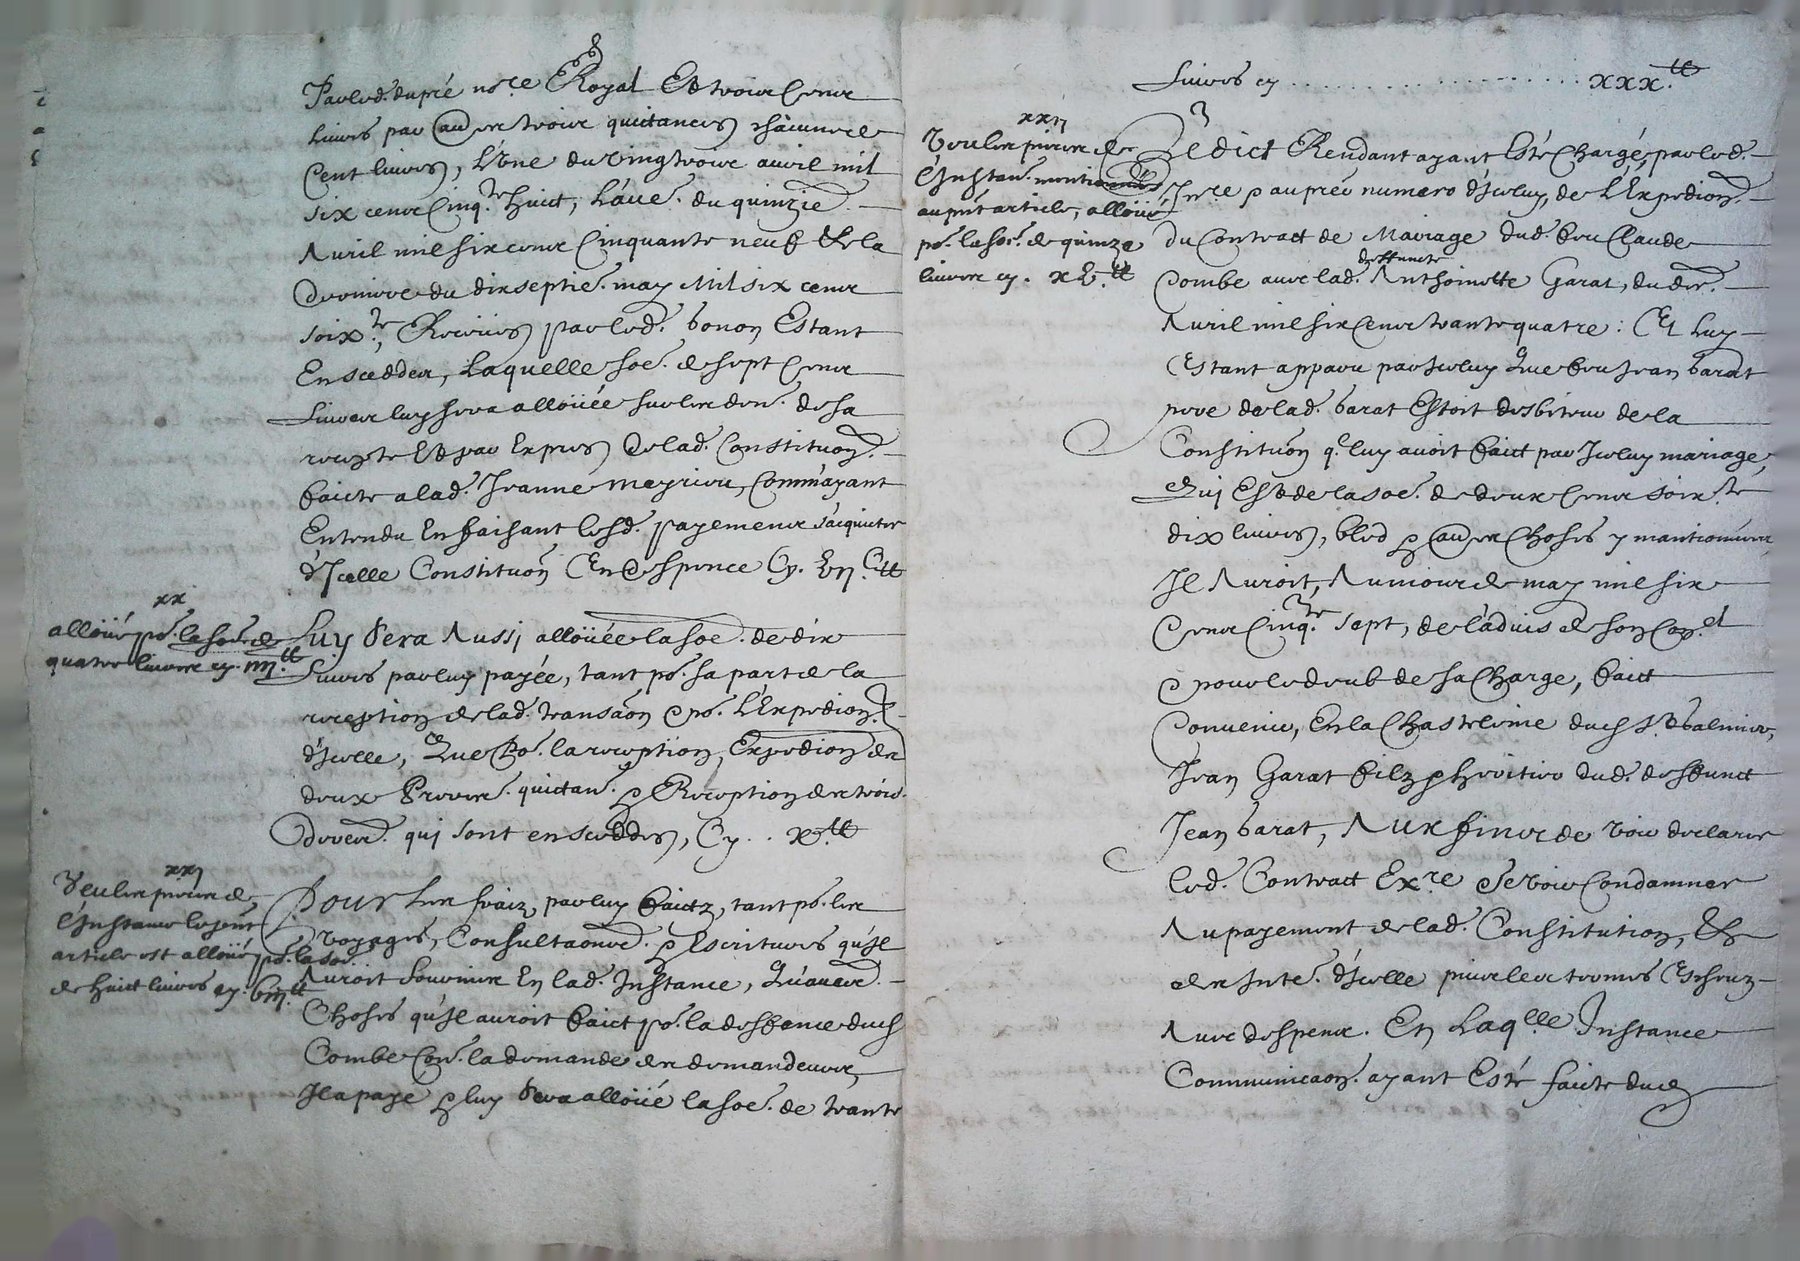 Par led. dupré no.re Royal Et trois Cens
Livres par au.es trois quictances chacune de
Cent livres, L'vne du vingtrois auril mil
six cens Cinq.te huict, L'au.e du quinzie.
Auril mil six cens Cinquante neuf & la
derniere du dixseptie. may Mil six cens
soix.te, Receües par led. bonon Estant
En scedder, Laquelle soe. de sept Cens
Livres luy sera alloüée sur les den. de sa
recepte Et par Expres de lad. Constitution
faicte a lad. Jeanne meyrieu, Comm'ayant
Entendu En faisant lesd. payemens s'acquicter
d'Icelle Constituon En despence Cy. vij.C ₶
xx
alloüé po.r la so.e de
quatre livres cy. iiij.₶
Luy Sera Aussi alloüée la soe. de dix
Livres par luy payée, tant po.r sa part de la
reception de lad. transaon & po.r L'Expedion.
d'Icelle, Que Po.r la reception, Expedion de
deux Procu.es quictan. & Reception de trois
der. qui sont en scedder, Cy . . x.₶
xxj
Veu les pieces de
l'Instance le pent
article est alloüé po.r la so.e
de huict livres cy. viij.₶
Pour Les fraiz par luy faictz, tant po.r les
voyages, Consultaons. & Escritures qu'Il
Auroit Fournies En lad. Instance, Qu'au.es
Choses qu'Il auroit faict po.r la deffence dud
Combe Con. la demande des demandeurs,
Il a paye & luy sera alloüé la soe. de trante
Livres cy . . . . . . . . . . . . . . . xxx.₶
xxij
Veu les pieces de
l'Instan. mentionnée
au pnt article, alloüé
po.r la so.e de quinze
livres cy. xv.₶
Ledict Rendant ayant Esté Chargé, par led.
Jn.re & aupres numero d'Iceluy, de L'Expedion
du Contract de Mariage dud. feu Claude
deffuncte
Combe auec lad. Anthoinette Garat, du der.
Auril mil six Cens trante quatre : Et Luy
Estant apparu par Iceluy Que feu Jean barat
pere de lad. barat Estoit desbiteur de la
Constituon q.e luy auoit faict par Iceluy mariage,
Qui Est de la soe. de deux Cens soix.te
dix livres, bled & au.es Choses y mantionnées
Il Auroit, Au mois de may mil six
Cens Cinq.te sept, de l'aduis de son Con.el
& pour le deub de sa Charge, faict
Conuenir, En la Chastelenie dud S.t Galmier,
Jean Garat filz & heritier dud. deffunct
Jean barat, Aux fins de voir declarer
led. Contract Ex.re & Se voir Condamner
Au payement de lad. Constitution, Et
des Inte. d'Icelle puis les termes Escheuz
Auec despens. En Laq.lle Instance
Communicaon. ayant Esté faicte dud